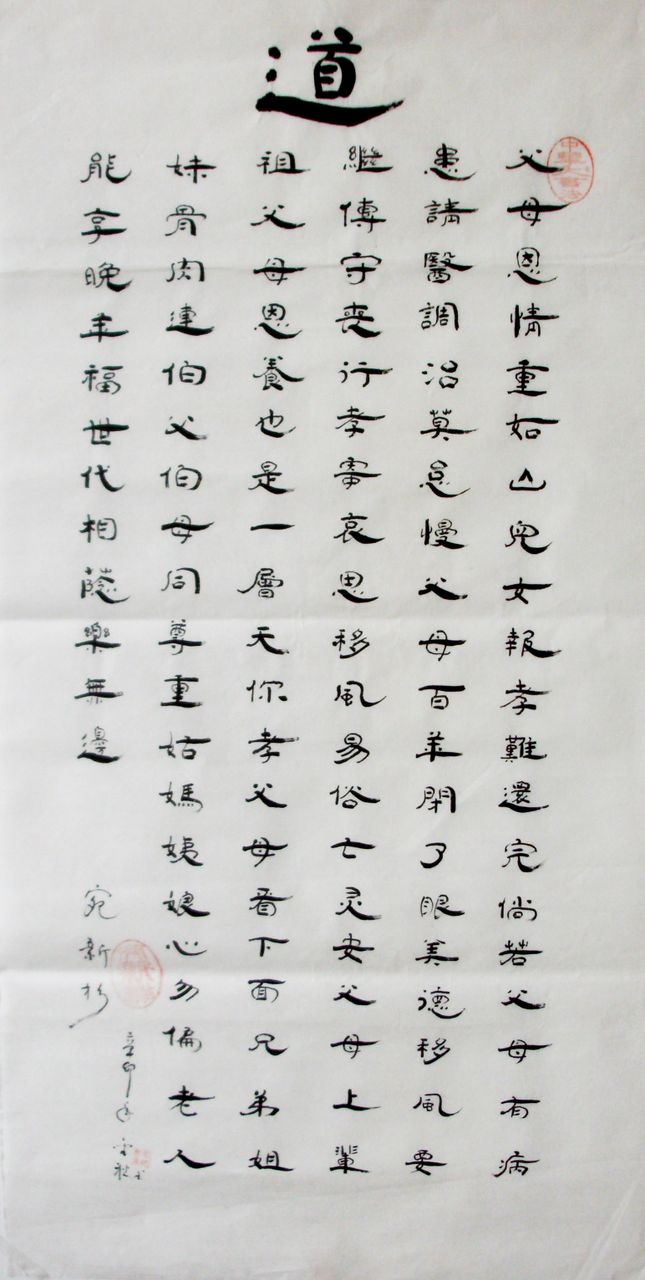 道
父母恩情重如山兒女報孝難還完倘若父母有病
患請醫調治莫怠慢父母百年閉了眼美德移風要
繼傳守丧行孝寄哀思移風易俗亡灵安父母上輩
祖父母恩養也是一層天你孝父母看下面兄弟姐
妹骨肉連伯父伯母同尊重姑媽姨娘心勿偏老人
能享晚年福世代相蔭樂無邊
宛新杉
辛卯年